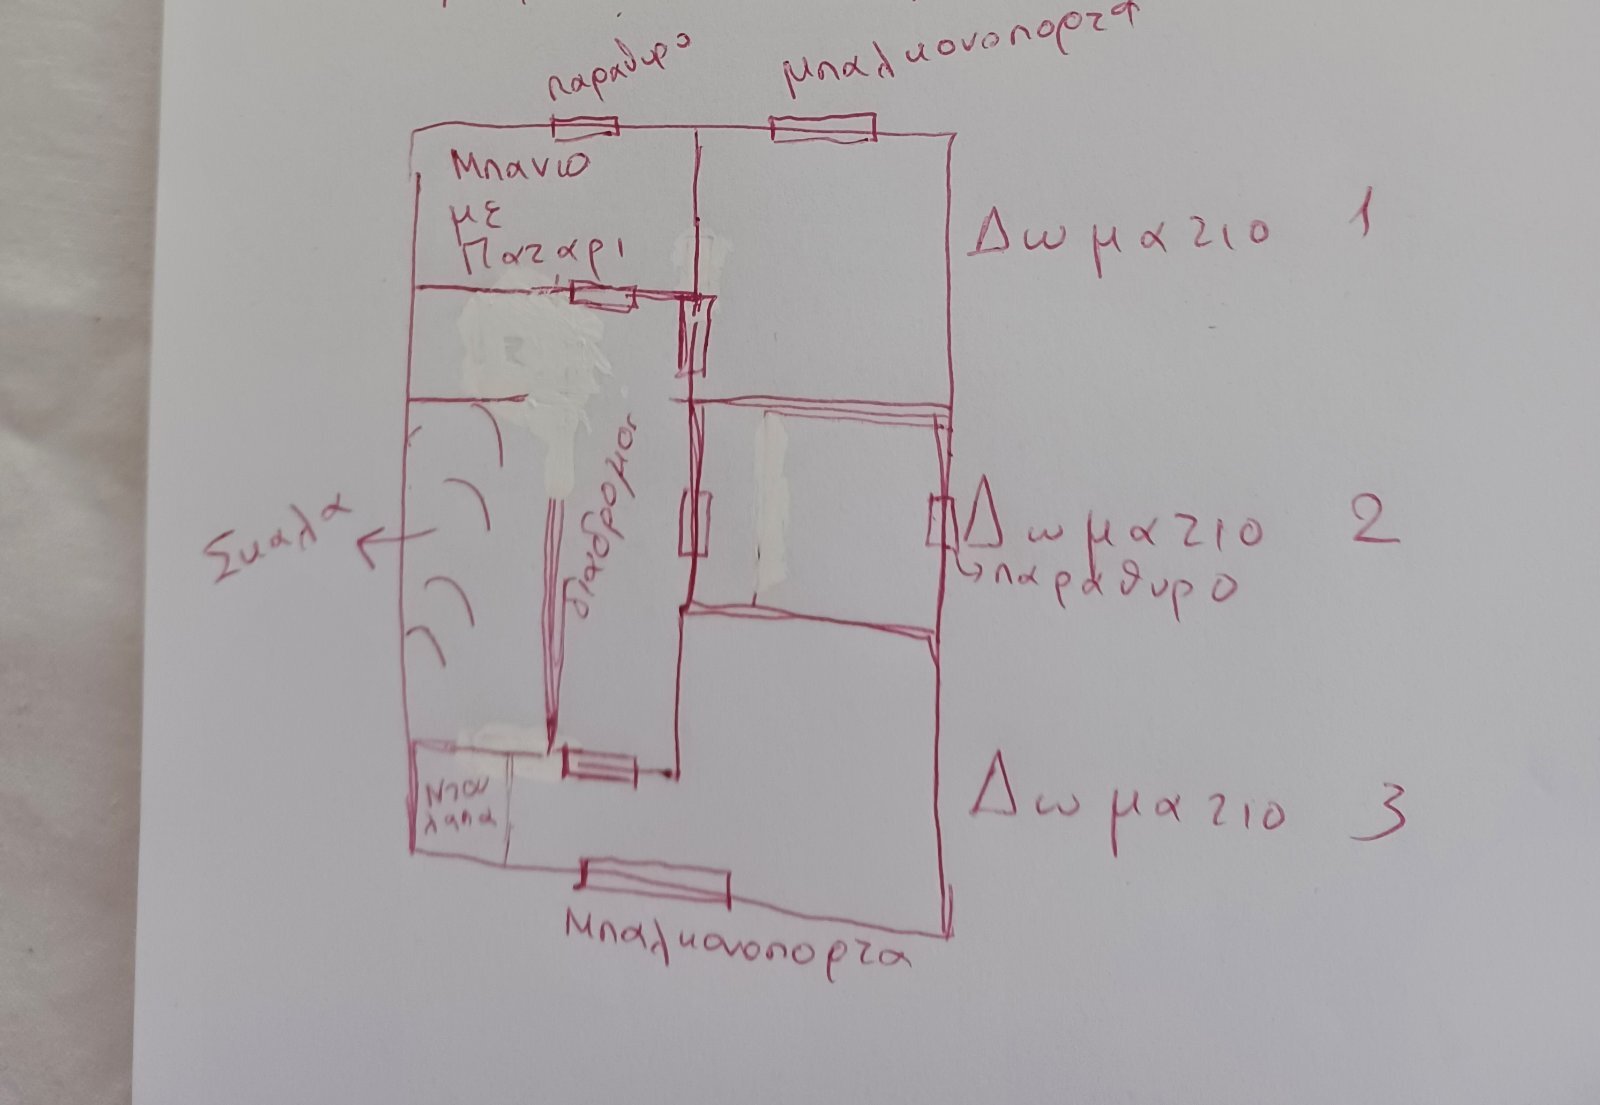 παραθυρο
μπαλκονοπορτα
Μπανιο
με
Παταρι
Δωματιο 1
διαδρομος
Σκαλα
Δωματιο 2
παραθυρο
Ντου
λαπα
Δωματιο 3
Μπαλκονοπορτα